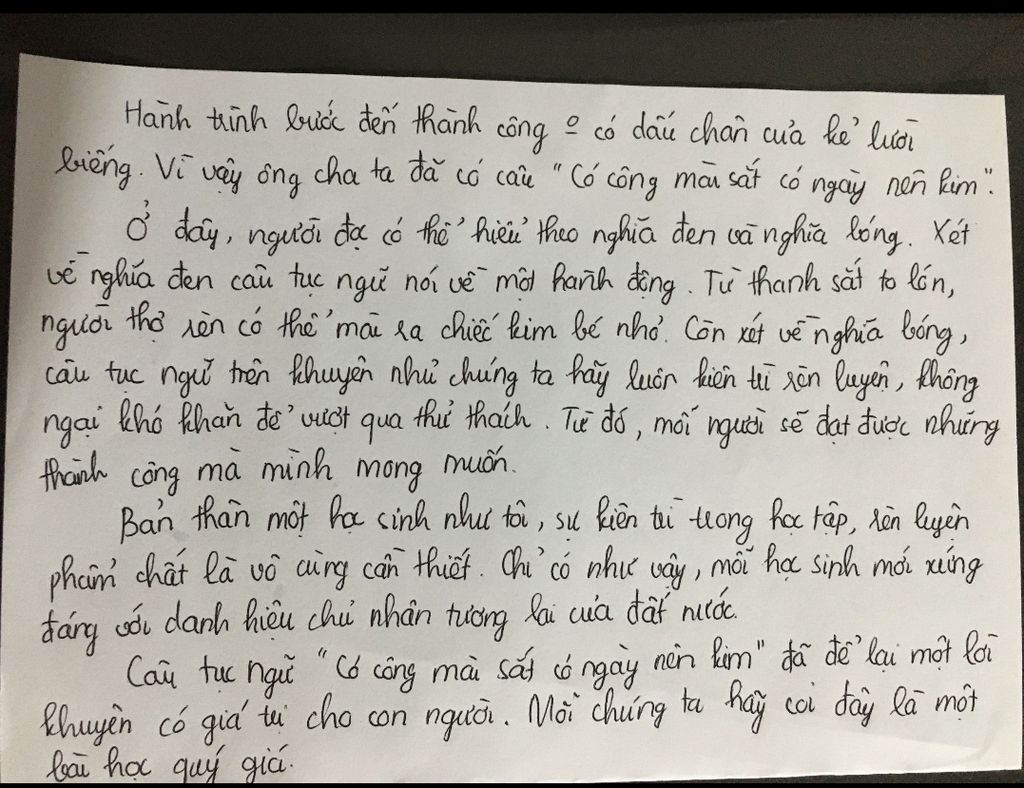 Hành trình bước đến thành công o có dấu chân của kẻ lười
biếng. Vì vậy ông cha ta đã có câu "Có công mài sắt có ngày nên kim".
Ở đây, người đọc có thể hiểu theo nghĩa đen và nghĩa bóng. Xét
về nghĩa đen câu tục ngữ nói về một hành động. Từ thanh sắt to lớn,
người thợ rèn có thể mài ra chiếc kim bé nhỏ. Còn xét về nghĩa bóng,
câu tục ngữ trên khuyên nhủ chúng ta hãy luôn kiên trì rèn luyện, không
ngại khó khăn để vượt qua thử thách. Từ đó, mỗi người sẽ đạt được những
thành công mà mình mong muốn.
Bản thân một học sinh như tôi, sự kiên trì trong học tập, rèn luyện
phẩm chất là vô cùng cần thiết. Chỉ có như vậy, mỗi học sinh mới xứng
đáng với danh hiệu chủ nhân tương lai của đất nước.
Câu tục ngữ "Có công mài sắt có ngày nên kim" đã để lại một lời
khuyên có giá trị cho con người. Mỗi chúng ta hãy coi đây là một
bài học quý giá.